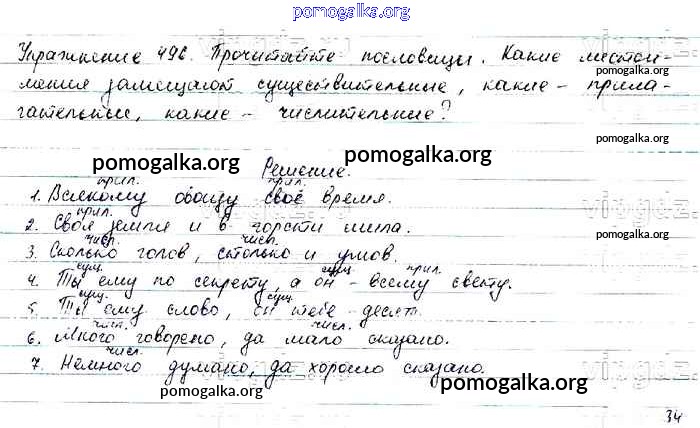 pomogalka.org
Упражнение 496. Прочитайте пословицы. Какие местои-
pomogalka.org
мения замещают существительные, какие - прила-
гательные, какие - числительные?
pomogalka.org
pomogalka.org pomogalka.org
Решение.
прил. прил.
1. Всякому овощу своё время.
прил.
2. Своя земля и в горсти мила.
pomogalka.org
числ. числ.
3. Сколько голов, столько и умов.
сущ. сущ. прил.
4. Ты ему по секрету, а он - всему свету.
сущ. сущ.
5. Ты ему слово, он тебе десять.
pomogalka.org
числ. числ.
6. Много говорено, да мало сказано.
числ.
7. Немного думано, да хорошо сказано.
pomogalka.org pomogalka.org
34